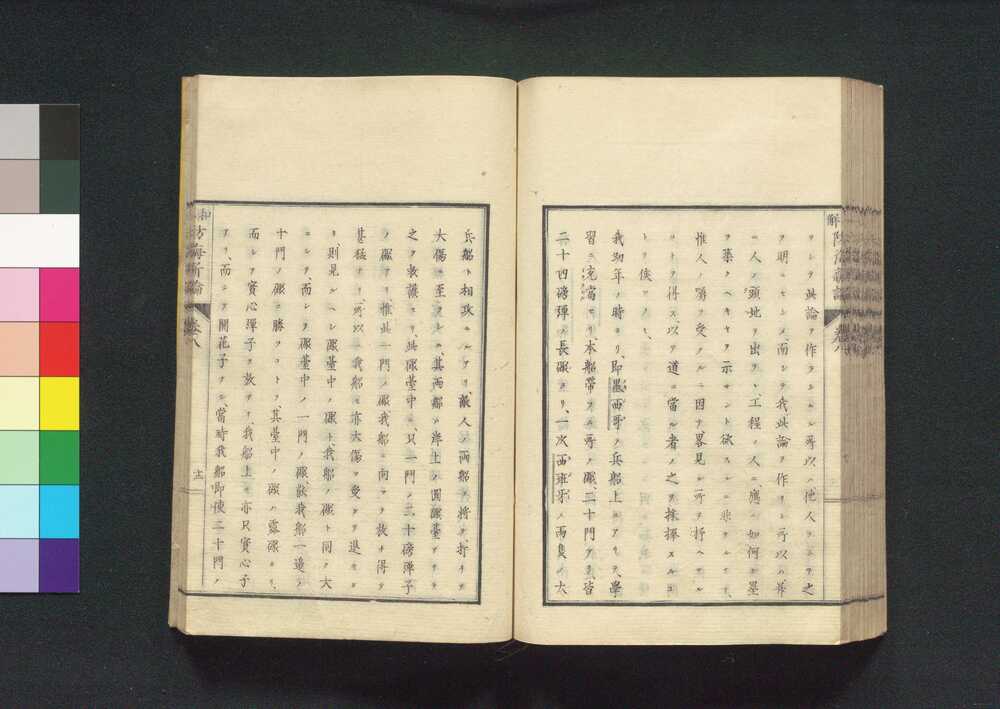 リシテ此論ヲ作ラシムル所以ハ、他人ヲシテ之
ヲ明ニシ、而シテ我此論ヲ作リシ所以ハ、昔
一人ノ頭地ヲ出ツル、工程ノ人ニ、應ニ如何ニ壘
ヲ築クヘキヤヲ示サント欲スルニ非サルナリ、
惟人ノ嘱ヲ受クルニ因テ畧見シ所ヲ抒ヘサル
コトヲ得ス、以テ道ニ當ル者ノ之ヲ採擇スルコ
トヲ俟ツノミ、
我幼年ノ時ニ、即墨西哥ノ兵船上ニアリテ、學
習ニ充當セリ、本船帶フル所ノ礟、二十門アリ、皆
二十四磅彈ノ長礟ナリ、一次西班牙ノ兩隻ノ大
兵船ト相攻ムルアリ、敵人ノ兩船ヲ將テ、打チテ
大傷ニ至ラシム、其兩船ハ岸上ノ圓礟臺アリテ
之ヲ救護セリ、此礟臺中ニ、只一門ノ三十磅彈子
ノ礟アリ、惟此一門ノ礟我船ニ向テ放チ得テ
甚猛ナリ、所以ニ我船モ亦大傷ヲ受ケテ退キタ
リ、則見ルヘシ礟臺中ノ礟ト、我船ノ礟ト同ク大
ニシテ、而シテ礟臺中ノ一門ノ礟、能我船一邊ノ
十門ノ礟ニ勝ツコト、其臺中ノ礟ハ露礟ニシ
而シテ實心彈子ヲ放テリ、我船上モ亦只實心子
アリ、而シテ開花子ナシ、當時我船即使二十門ノ
防海新論
卷八